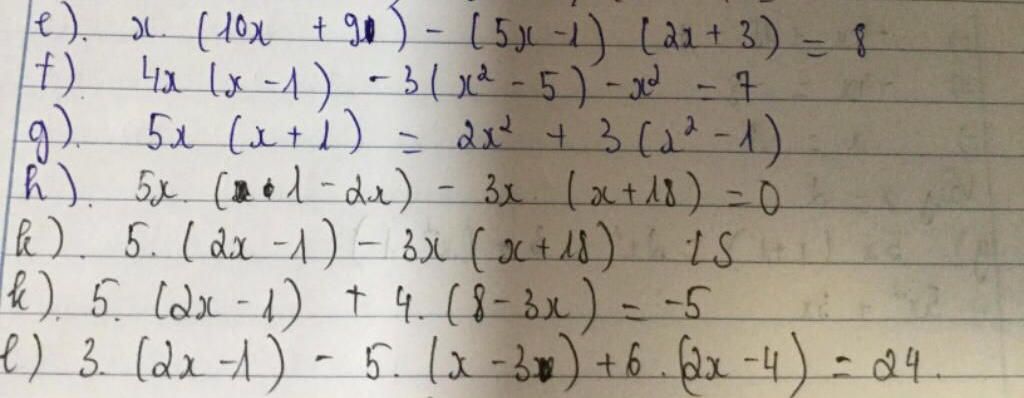 e). x. (10x + 9) - (5x - 1) (2x + 3) = 8
f) 4x (x - 1) - 3 (x² - 5) - x² = 7
g). 5x (x + 1) = 2x² + 3 (x² - 1)
h). 5x. (1 - 2x) - 3x (x + 18) = 0
k). 5. (2x - 1) - 3x (x + 18)
k). 5. (2x - 1) + 4. (8 - 3x) = -5
l) 3. (2x - 1) - 5. (x - 3) + 6. (2x - 4) = 24.